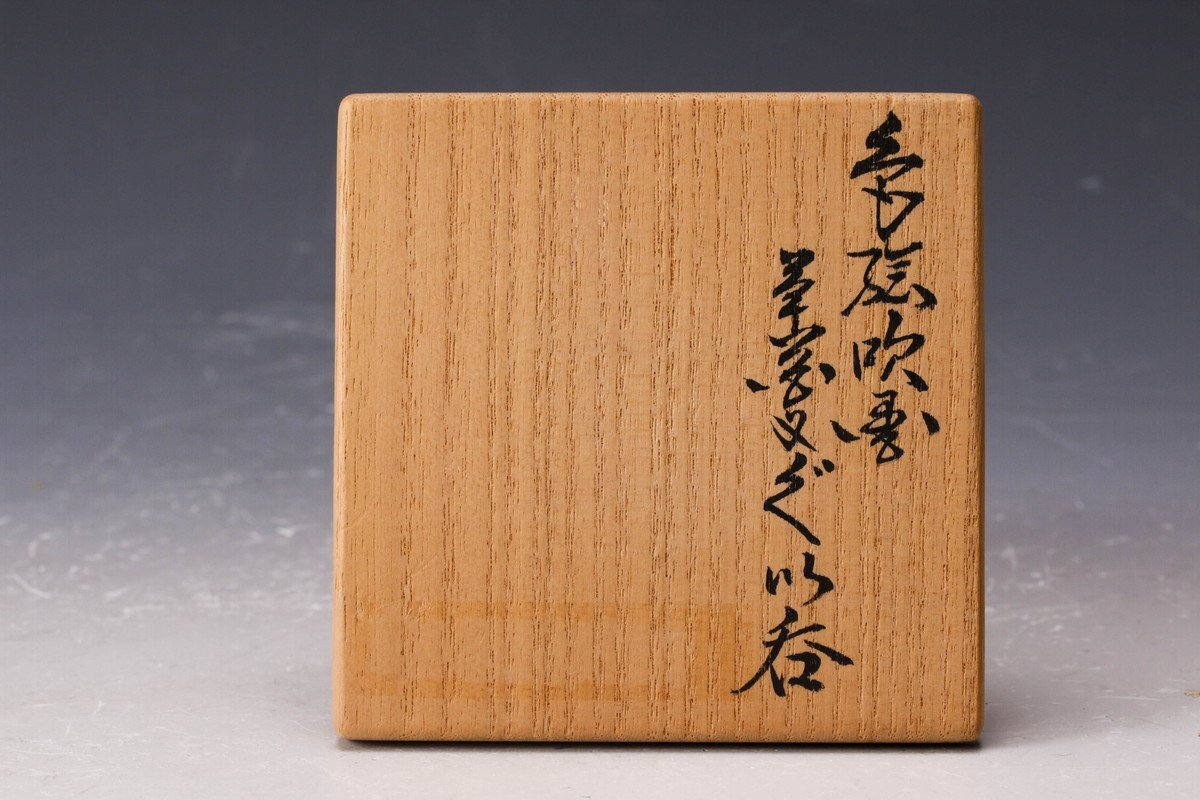 色絵吹墨
草花文ぐい呑